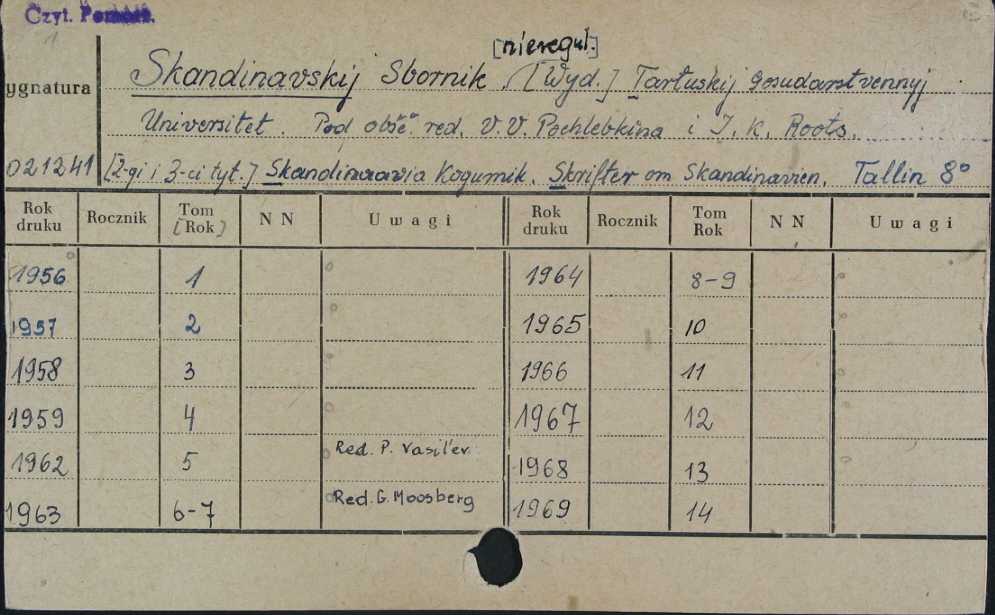 Czyt. Pomorz.
[nieregul.]
Skandinavskij Sbornik. [Wyd.] Tartuskij gosudarstvennyj
ygnatura
Universitet. Pod obšč. red. V. V. Pochlebkina i J. K. Roots.
021241 [2-gi i 3-ci tyt.] Skandinaavia Kogumik. Skrifter om Skandinavien. Tallin 8°
Rok druku Rocznik Tom [Rok] N N Uwagi Rok druku Rocznik Tom Rok N N Uwagi
1956 1 1964 8-9
1957 2 1965 10
1958 3 1966 11
1959 4 1967 12
1962 5 Red. P. Vasil'ev 1968 13
1963 6-7 Red. G. Moosberg 1969 14